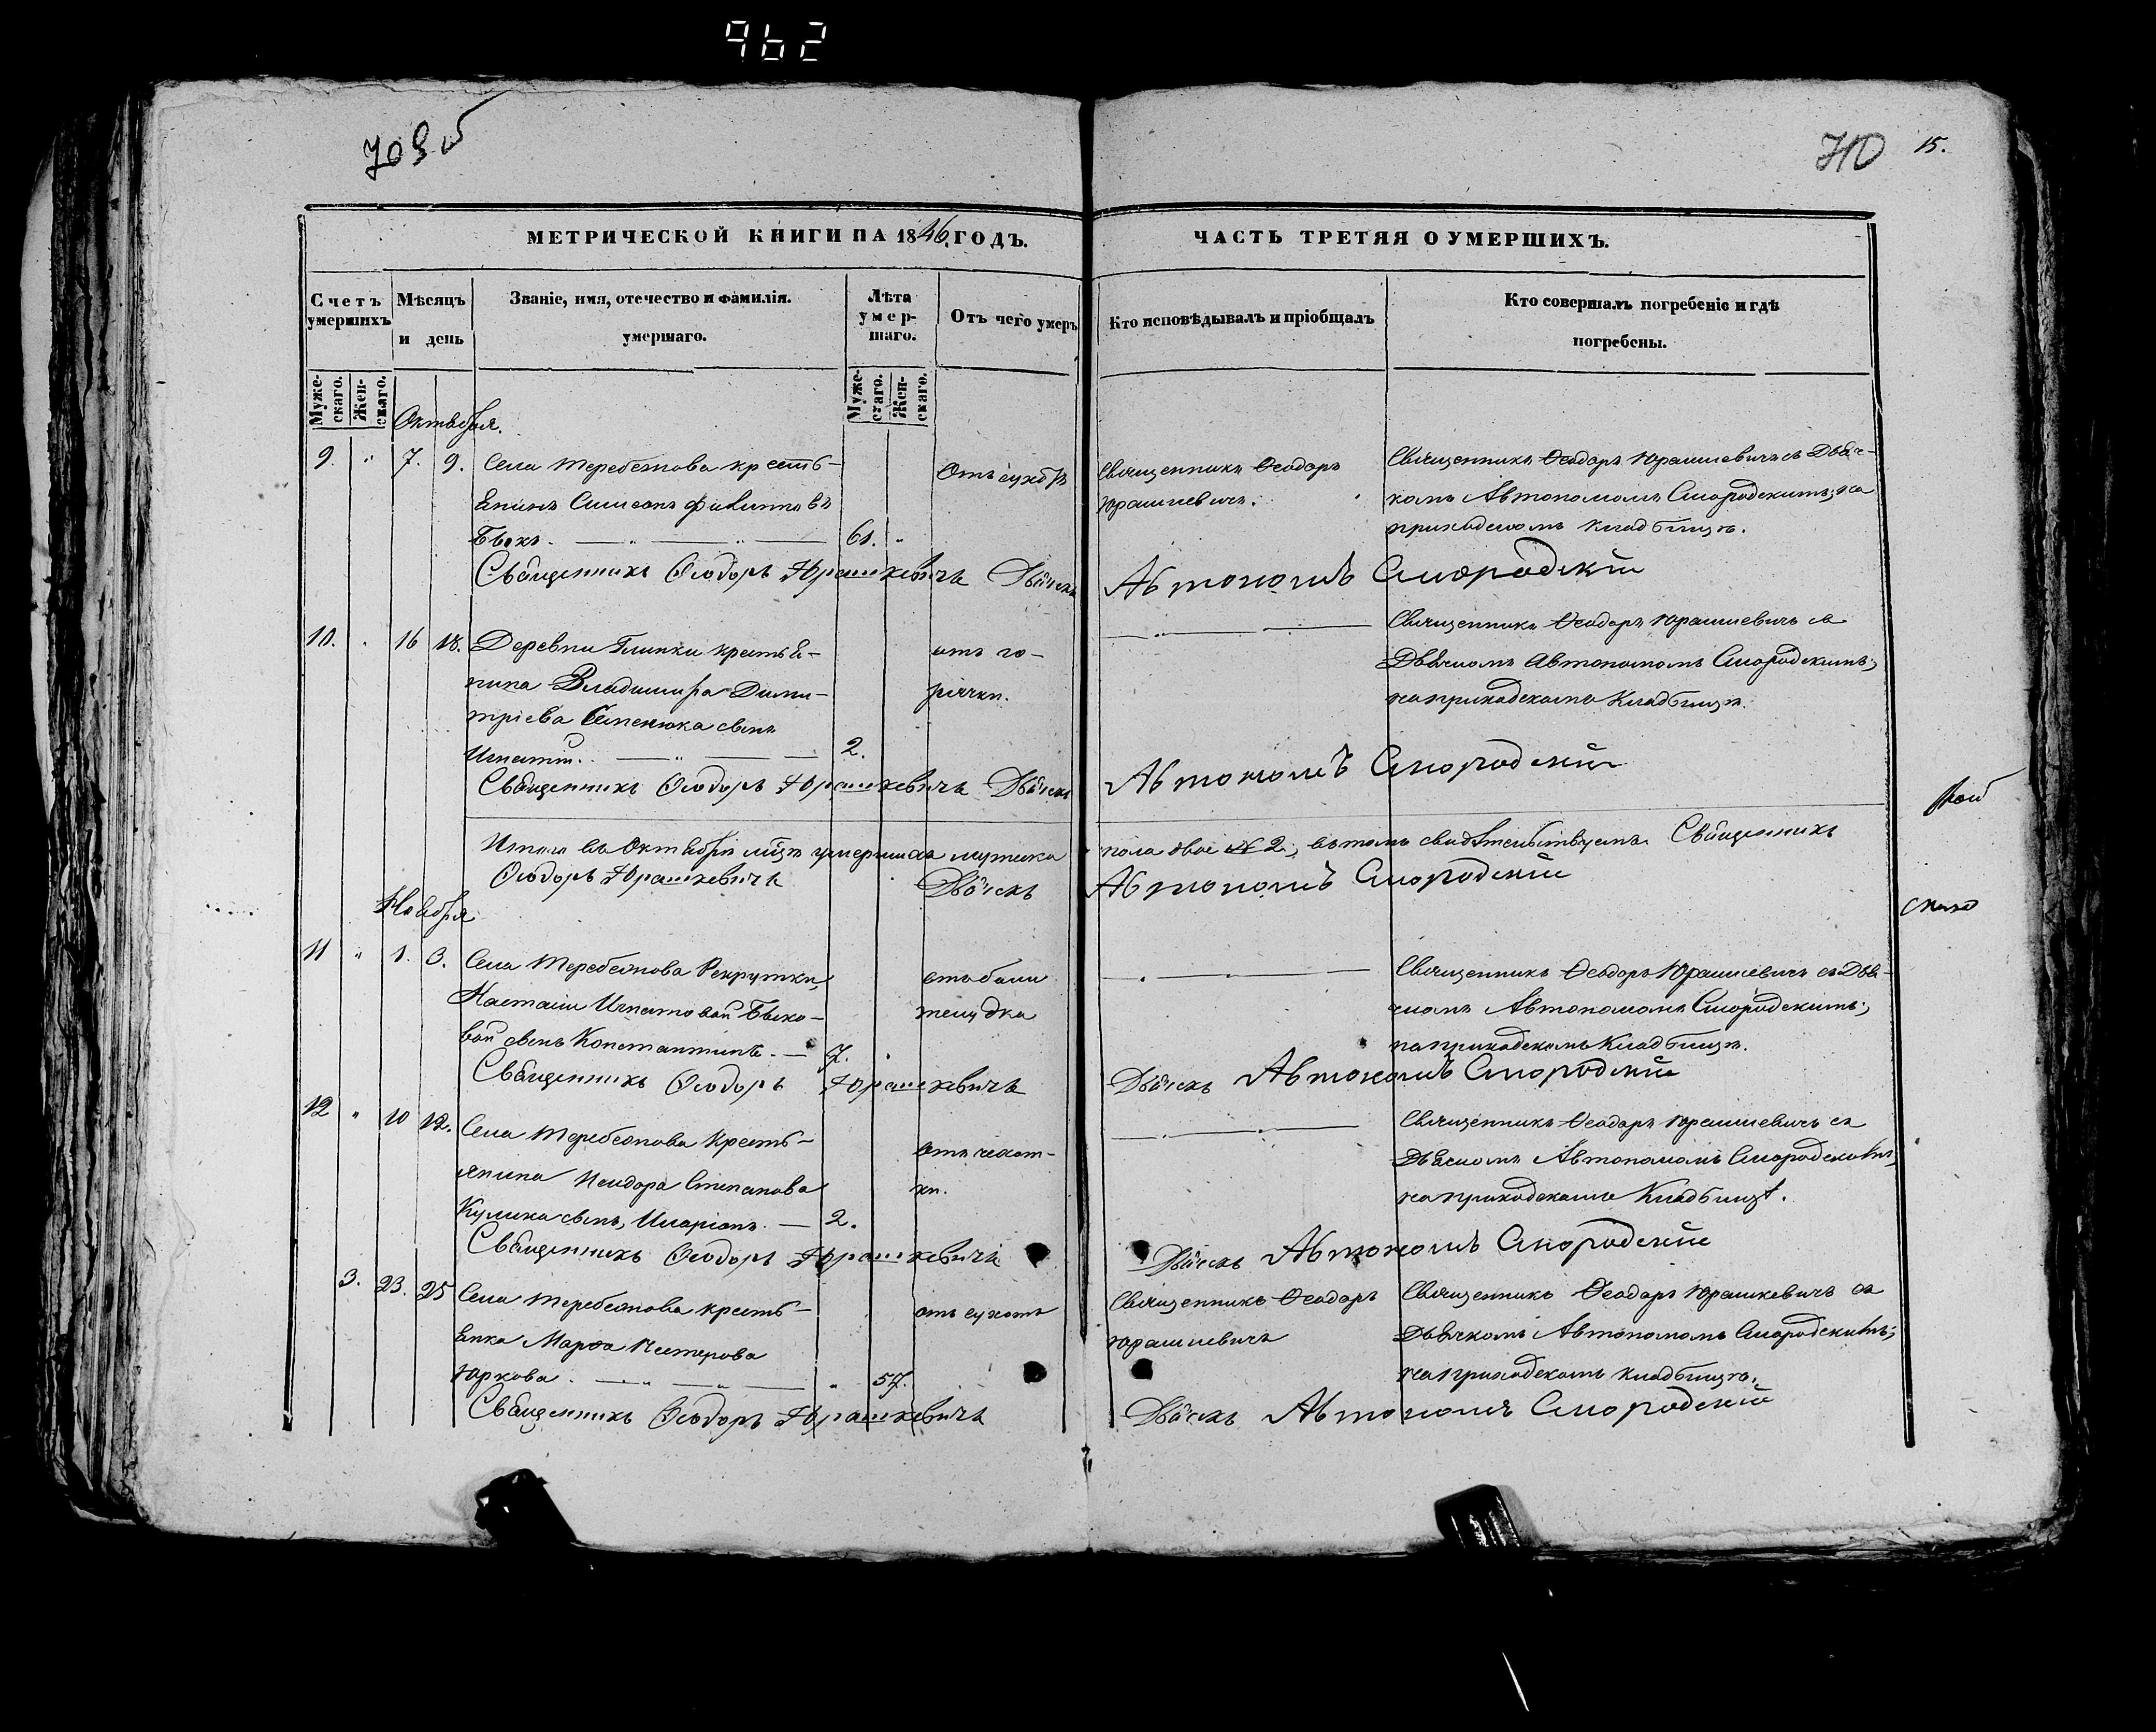 962
709 об
710 15.
МЕТРИЧЕСКОЙ КНИГИ НА 1846 ГОДЪ.
ЧАСТЬ ТРЕТЯЯ О УМЕРШИХЪ.
Счетъ умершихъ
Мѣсяцъ и день
Званіе, имя, отечество и фамилія.
умершаго.
Лѣта умер-
шаго.
Отъ чего умеръ
Кто исповѣдывалъ и пріобщалъ
Кто совершалъ погребеніе и гдѣ
погребены.
Муже-
скаго.
Жен-
скаго.
Муже-
скаго.
Жен-
скаго.
Октября.
9. " 7. 9. Села Теребежова крестъ-
янинъ Симеонъ Филипповъ
Быкъ. 61. "
Священникъ Ѳеодоръ
Юрашкевичъ.
Священникъ Ѳеодоръ Юрашкевичъ съ Дьяч-
комъ Автономомъ Смородскимъ; на
приходскомъ кладбищѣ.
Священникъ Ѳеодоръ Юрашкевичъ Дьячекъ Автономъ Смородскій
10. " 16 18. Деревни Глинки крестья-
нина Владимира Дими-
тріева сынъ
Игнатій. 2.
отъ го-
рячки.
Священникъ Ѳеодоръ Юрашкевичъ съ
Дьячкомъ Автономомъ Смородскимъ;
на приходскомъ кладбищѣ.
Священникъ Ѳеодоръ Юрашкевичъ Дьячекъ Автономъ Смородскій
Итого въ Октябрѣ умершихъ мужска пола двое № 2, въ томъ свидѣтельствуемъ. Священникъ
Ѳеодоръ Юрашкевичъ Дьячекъ Автономъ Смородскій
Ноября
11 " 1. 3. Села Теребежова Рекрутки
Настасіи Игнатовой Быко-
вой сынъ Константинъ. 7. "
отъ боли
желудка
Священникъ Ѳеодоръ Юрашкевичъ съ Дья-
чкомъ Автономомъ Смородскимъ;
на приходскомъ кладбищѣ.
Священникъ Ѳеодоръ Юрашкевичъ Дьячекъ Автономъ Смородскій
12 " 10 12. Села Теребежова крестъ-
янина Исидора Степанова
Кулика сынъ, Иларіонъ. 2.
отъ чахот-
ки.
Священникъ Ѳеодоръ Юрашкевичъ съ
Дьячкомъ Автономомъ Смородскимъ,
на приходскомъ кладбищѣ.
Священникъ Ѳеодоръ Юрашкевичъ Дьячекъ Автономъ Смородскій
3. 23. 25 Села Теребежова крестъ-
янка Марфа Нестерова
Юркова. " 57.
отъ сухотъ
Священникъ Ѳеодоръ
Юрашкевичъ
Священникъ Ѳеодоръ Юрашкевичъ съ
Дьячкомъ Автономомъ Смородскимъ;
на приходскомъ кладбищѣ.
Священникъ Ѳеодоръ Юрашкевичъ Дьячекъ Автономъ Смородскій